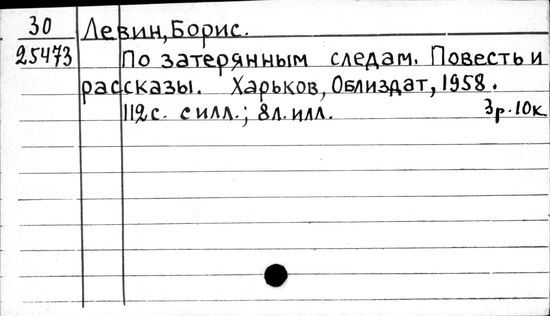 30 Левин, Борис.
25473 По затерянным следам. Повесть и
рассказы. Харьков, Облиздат, 1958.
112 с. с илл.; 8 л. илл. 3 р. 10 к